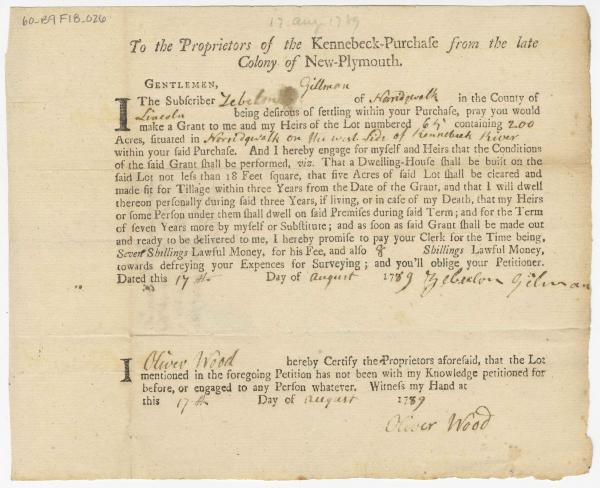 60-B9 F18_026
17 aug 1789
To the Proprietors of the Kennebeck-Purchaſe from the late
Colony of New-Plymouth.
GENTLEMEN,
Gillman
The Subſcriber Zebelon of Norridgwalk in the County of
Lincoln being deſirous of ſettling within your Purchaſe, pray you would
make a Grant to me and my Heirs of the Lot numbered containing 200
Acres, situated in Norridgwalk on the west Side of Kennebeck River
within your ſaid Purchaſe. And I hereby engage for myſelf and Heirs that the Conditions
of the ſaid Grant ſhall be performed, viz. That a Dwelling-Houſe ſhall be built on the
ſaid Lot not leſs than 18 Feet ſquare, that five Acres of ſaid Lot ſhall be cleared and
made fit for Tillage within three Years from the Date of the Grant, and that I will dwell
thereon perſonally during ſaid three Years, if living, or in caſe of my Death, that my Heirs
or ſome Perſon under them ſhall dwell on ſaid Premiſes during ſaid Term; and for the Term
of ſeven Years more by myſelf or Subſtitute; and as ſoon as ſaid Grant ſhall be made out
and ready to be delivered to me, I hereby promiſe to pay your Clerk for the Time being,
Seven Shillings Lawful Money, for his Fee, and alſo 8 Shillings Lawful Money,
towards defreying your Expences for Surveying; and you'll oblige your Petitioner.
Dated this 17th Day of August 1789 Zebelon Gilman
I Oliver Wood hereby Certify the Proprietors aforeſaid, that the Lot
mentioned in the foregoing Petition has not been with my Knowledge petitioned for
before, or engaged to any Perſon whatever. Witneſs my Hand at
this 17th Day of August 1789
Oliver Wood